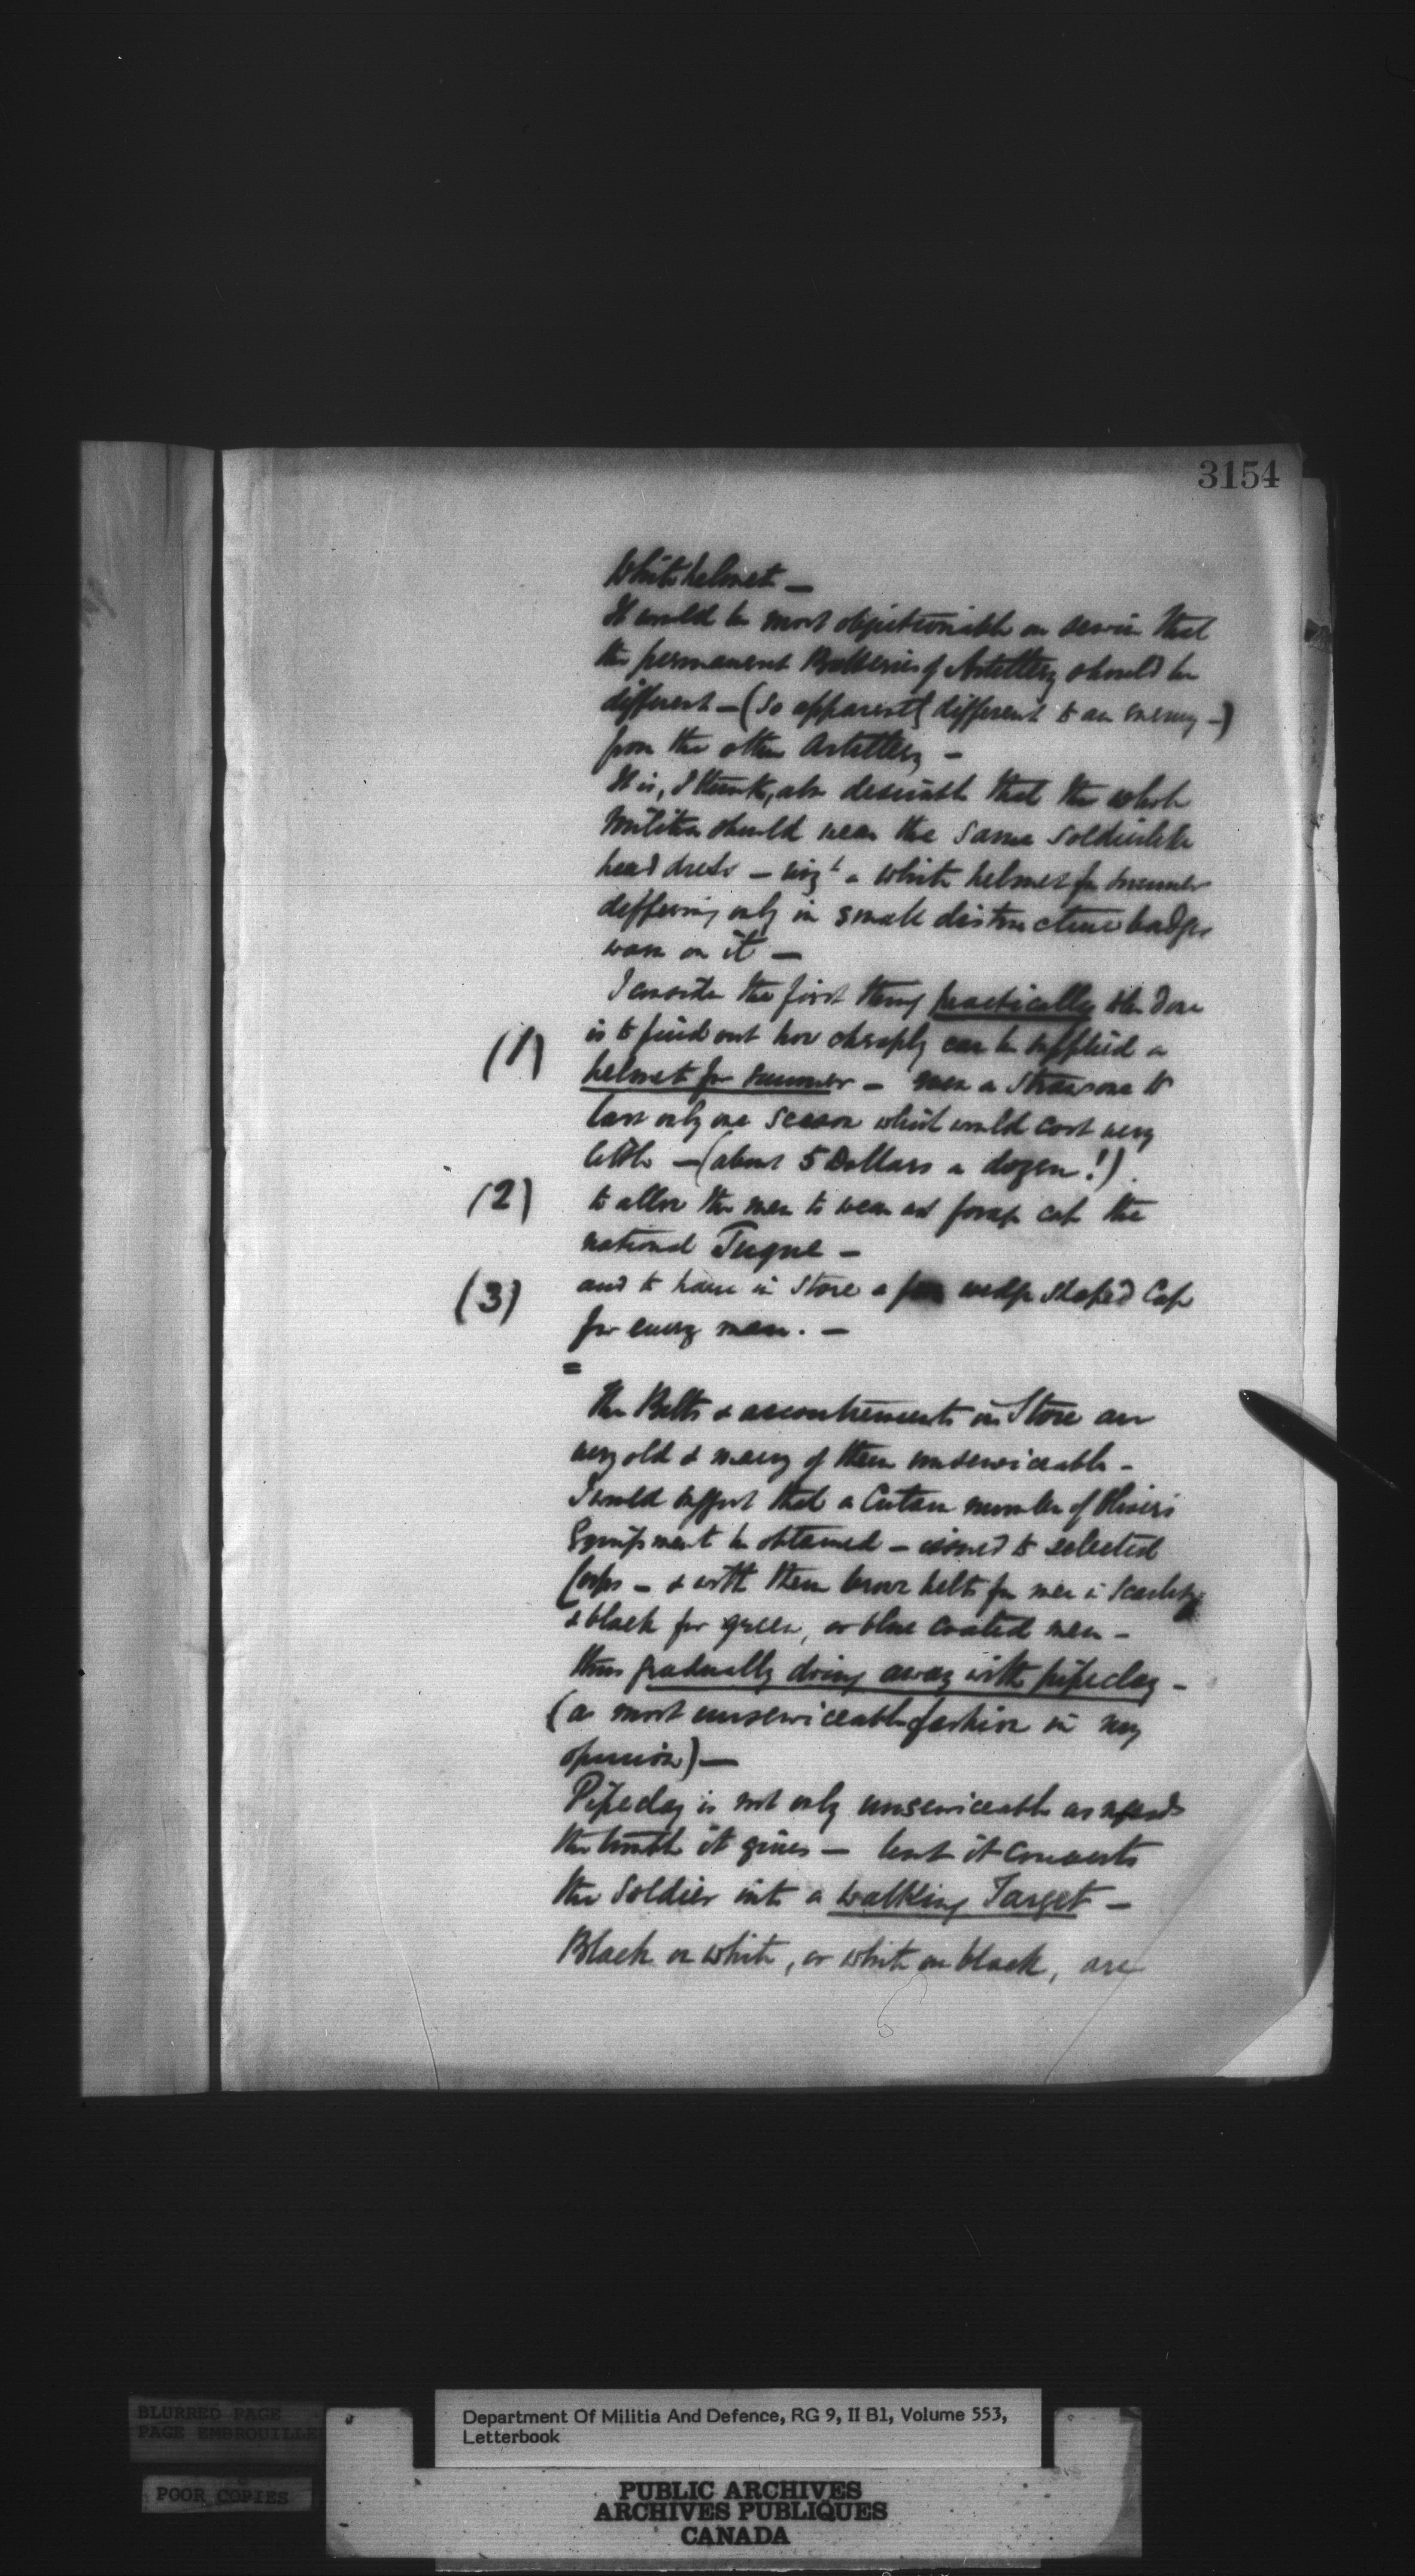 3154
White helmet —
It would be most objectionable on service that
the permanent Batteries of Artillery should be
different — (so apparently different to an enemy —)
from the other Artillery —
It is, I think, also desirable that the whole
Militia should wear the same soldierlike
head dress — vizt a white helmet for summer
differing only in small distinctive badge
worn on it —
I consider the first thing practically to be done
(1) is to find out how cheaply can be supplied a
helmet for summer — even a Straw one to
last only one season which would cost very
little — (about 5 Dollars a dozen!).
(2) to allow the men to wear as forage cap the
national Tuque —
(3) and to have in Store a wedge shaped Cap
for every man. —
=
The Belts & accoutrements in Store are
very old & many of them unserviceable —
I would suggest that a Certain number of Olivers
Equipment be obtained — issued to selected
Corps — & with them brown belts for men in Scarlet
& black for green, or blue coated men —
thus gradually doing away with pipeclay —
(a most unserviceable fashion in my
opinion) —
Pipeclay is not only unserviceable as regards
the trouble it gives — but it converts
the Soldier into a walking Target —
Black on white, or white on black, are
BLURRED PAGE
PAGE EMBROUILLEE
POOR COPIES
Department Of Militia And Defence, RG 9, II B1, Volume 553,
Letterbook
PUBLIC ARCHIVES
ARCHIVES PUBLIQUES
CANADA